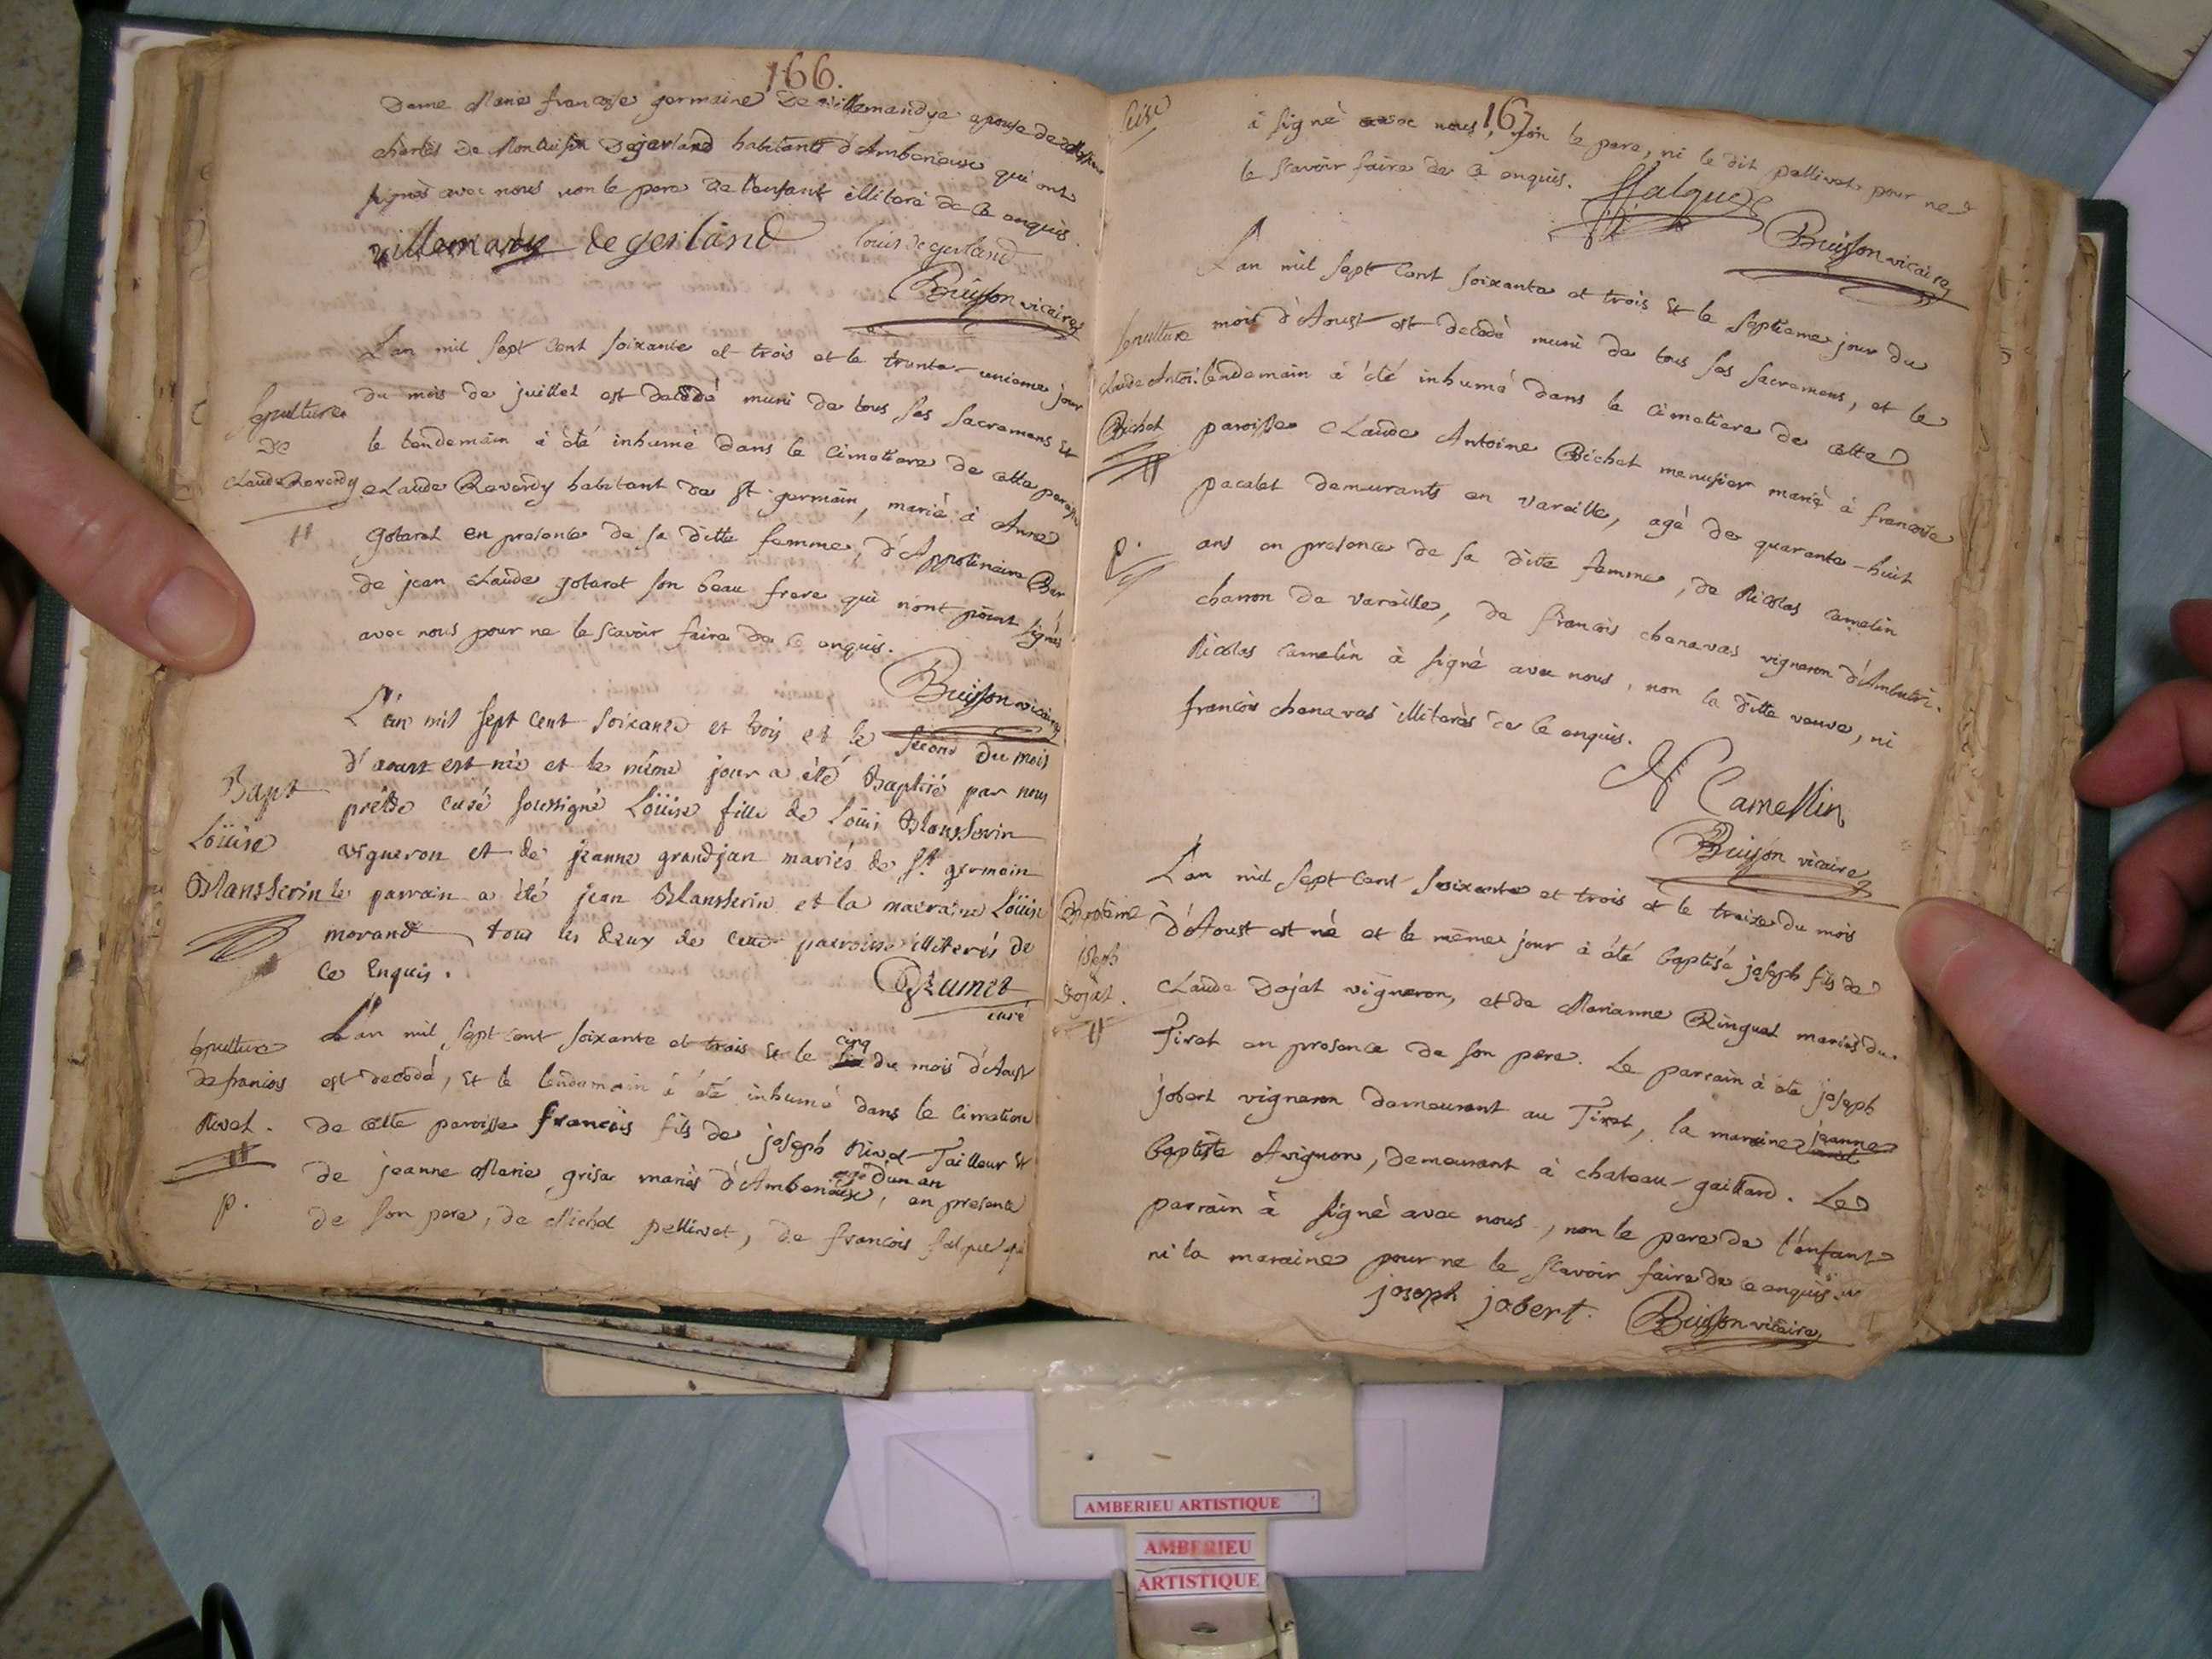 166.
Dame Marie francoise germaine De villemandye epouse de Messire
charles De Montluisin Degerland habitants d'Amberieux qui ont
signés avec nous non le pere de l'enfant illiteré de ce enquis.
villemandy de gerland louis de gerland
Buisson vicaire
L'an mil sept cent soixante et trois et le trente-unieme jour
du mois de juillet est decedé muni de tous ses sacremens et
le lendemain à été inhumé dans le cimetiere de cette paroisse
Claude Reverdy habitant de St germain, marié à Anne
gotaret en presence de sa ditte femme, d'Appolinaire
de jean claude gotaret son beau frere qui n'ont point signés
avec nous pour ne le scavoir faire de ce enquis.
Buisson vicaire
Sepulture
De
Claude Reverdy
L'an mil sept cent soixante et trois et le second du mois
d'aoust est née et le même jour a été Baptisé par nous
prêtre curé soussigné Loüise fille de Loüis Blansserin
vigneron et de jeanne grandjan mariés de St. germain
le parrain a été jean Blansserin et la marraine Loüise
morand tous les deux de cette parroisse illiterés de
ce Enquis.
curé
Bapt
Loüise
Blansserin
L'an mil sept cent soixante et trois et le cinq du mois d'Aoust
est decedé, et le lendemain à été inhumé dans le cimetiere
de cette paroisse francois fils de joseph Nivet Tailleur et
de jeanne Marie grisa mariés d'Amberieux, agé d'un an en presence
de son pere, de Michel pellivet, de francois falque qui
sepulture
de francois
Nivet.
p.
167
à signé avec nous, non le pere, ni le dit pellivet pour ne
le scavoir faire de ce enquis.
ffalque
Buisson vicaire
L'an mil sept cent soixante et trois et le septieme jour du
mois d'Aoust est decedé muni de tous ses sacremens, et le
lendemain à été inhumé dans le cimetiere de cette
paroisse Claude Antoine Bichet menusier marié à francoise
pacalet demeurants en Vareille, agé de quarante-huit
ans en presence de sa ditte femme, de Nicolas camelin
charron de vareilles, de francois chenavas vigneron d'Amberi.
Nicolas camelin à signé avec nous, non la ditte veuve, ni
francois chenavas illiterés de ce enquis.
N Camellin
Buisson vicaire
Sepulture
Claude Antoi.
Bichet
p.
L'an mil sept cent soixante et trois et le treize du mois
d'Aoust est né et le même jour à été baptisé joseph fils de
Claude Dojat vigneron, et de Marianne Ringuet mariés du
Tiret en presence de son pere. Le parrain à été joseph
jobert vigneron demeurant au Tiret, la maraine jeanne
baptiste Avignon, demeurant à chateau-gaillard. Le
parrain à signé avec nous, non le pere de l'enfant
ni la maraine pour ne le scavoir faire de ce enquis.
joseph jobert. Buisson vicaire
Bateme
joseph
Dojat.
AMBERIEU ARTISTIQUE
AMBERIEU
ARTISTIQUE